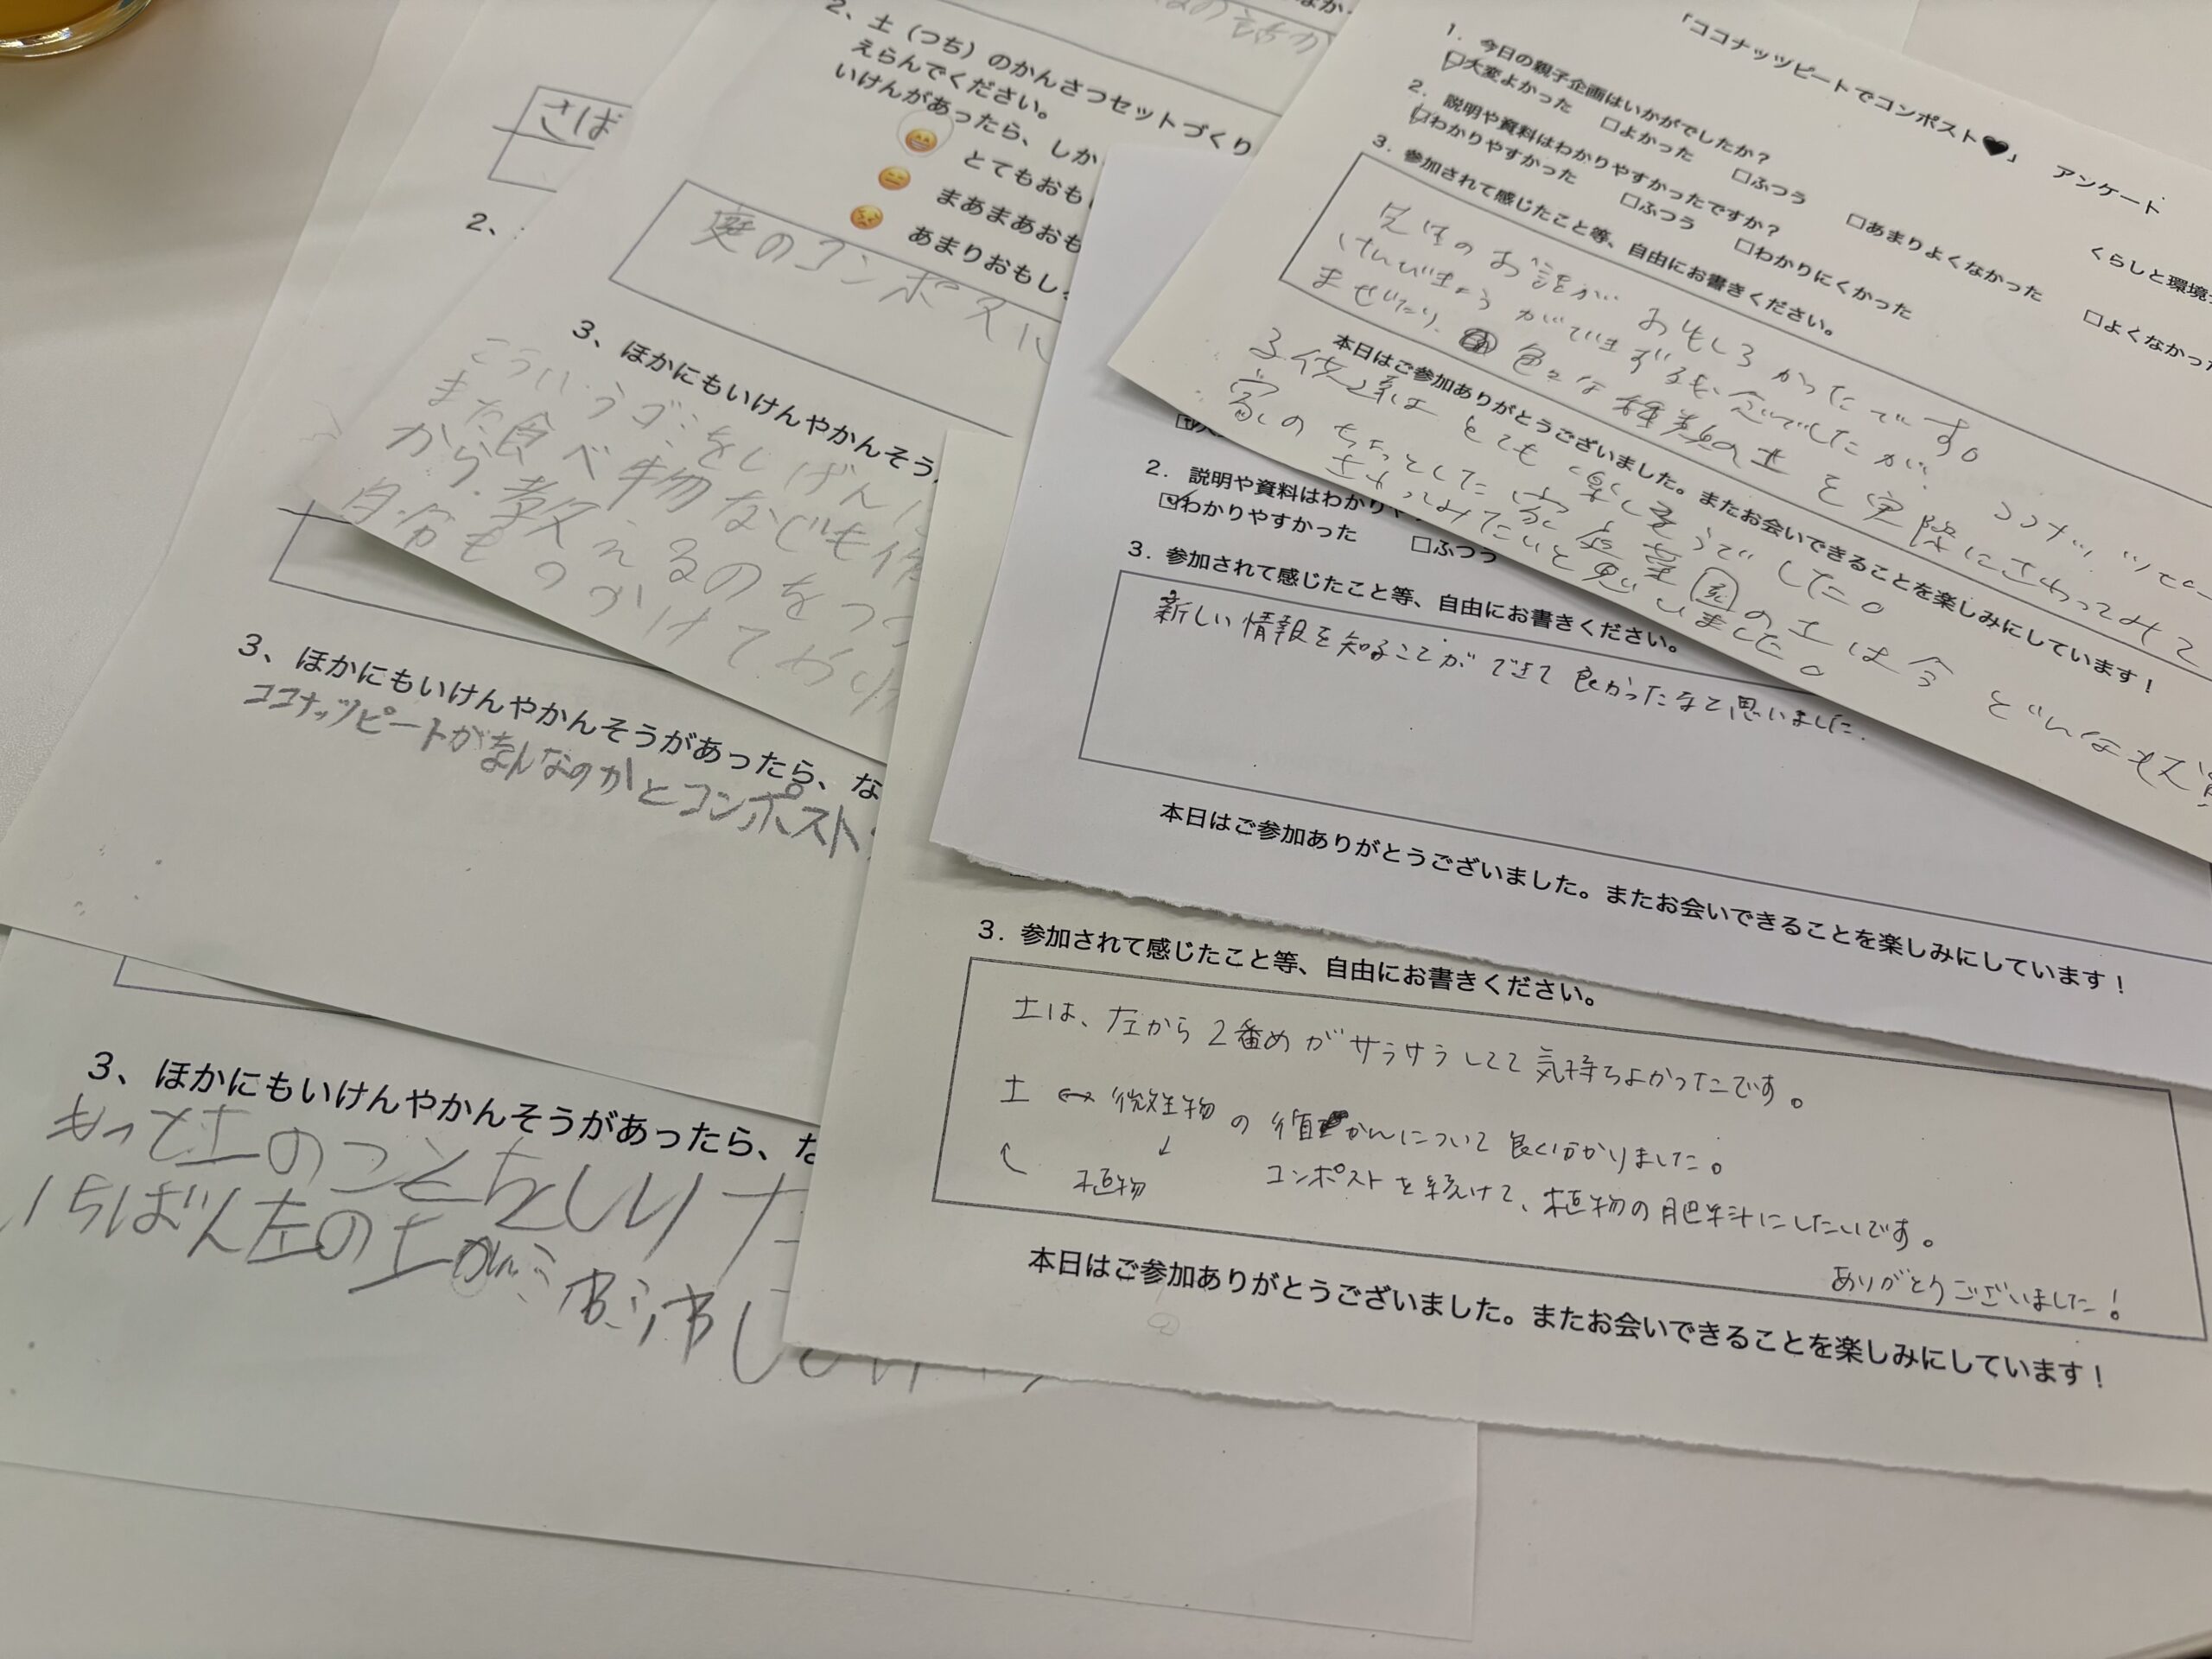 「ココナッツピートでコンポスト♥」 アンケート
くらしと環境
1. 今日の親子企画はいかがでしたか?
□大変よかった □よかった □ふつう □あまりよくなかった □よくなかった
2. 説明や資料はわかりやすかったですか?
□わかりやすかった □ふつう □わかりにくかった
3. 参加されて感じたこと等、自由にお書きください。
先生のお話が おもしろかったです。
けんびきょうができず残念でしたが、ココナッツピー
まぜたり、色々な種類の土を実際にさわってみて
子供達は とても楽しそうでした。
家のちょっとした家庭菜園の土は今 どんな状
さわってみたいと思いました。
本日はご参加ありがとうございました。またお会いできることを楽しみにしています!
2. 説明や資料はわかりや
☑わかりやすかった □ふつう
3. 参加されて感じたこと等、自由にお書きください。
新しい情報を知ることができて良かったなと思いました.
本日はご参加ありがとうございました。またお会いできることを楽しみにしています!
3. 参加されて感じたこと等、自由にお書きください。
土は、左から2番めがサラサラしてて気持ちよかったです。
土 ↔ 微生物 の 循かんについて良く分かりました。
植物 コンポストを続けて、植物の肥料にしたいです。
ありがとうございました!
本日はご参加ありがとうございました。またお会いできることを楽しみにしています!
2、土(つち)のかんさつセットづくり
えらんでください。
いけんがあったら、しか
😄 とてもおも
😑 まあまあおも
😣 あまりおもし
庭のコンポスに
3、ほかにもいけんやかんそう
こういうゴミをしげんに
また食べ物なども作
から、教えるのをつづ
自分も つづけて
さば
2、
3、ほかにもいけんやかんそうがあったら、な
ココナッツピートがなんなのかとコンポスト
3、ほかにもいけんやかんそうがあったら、な
もっと土のことをしりた
いちばん左の土が